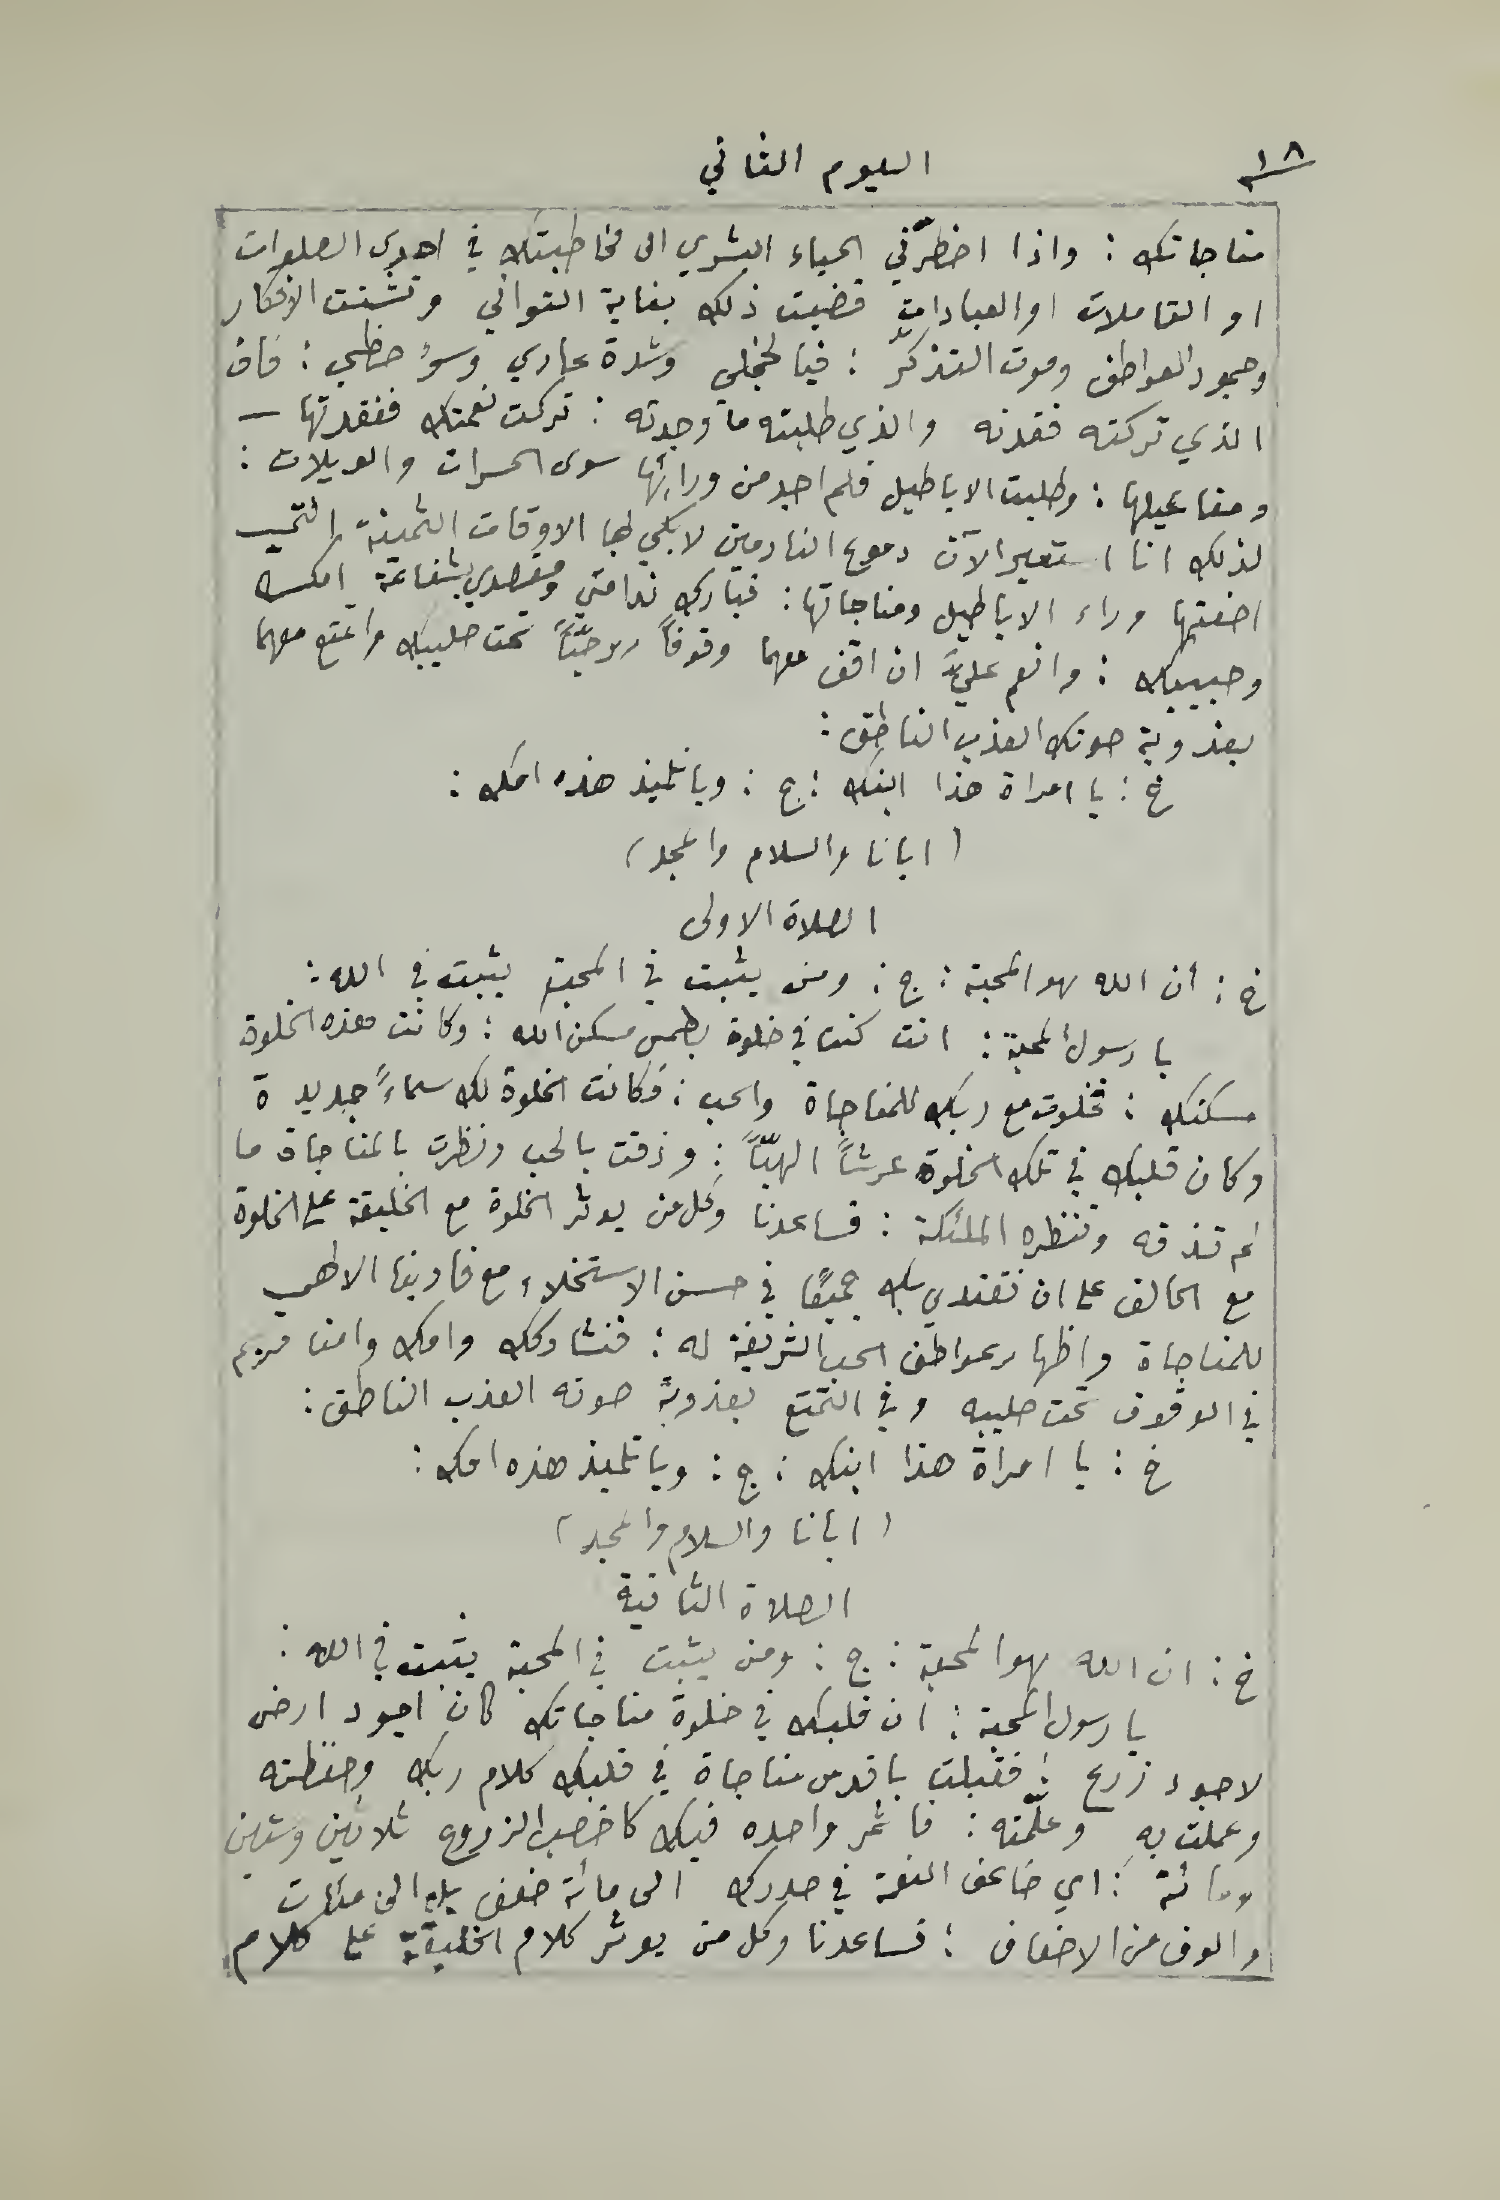 ١٨
اليوم الثاني
مناجاتك : واذا اضطرّني الحياء البشري الى مخاطبتك في احدى الصلوات
او التاملات او العبادات قضيت ذلك بغاية التواني وتشتت الافكار
وجمود العواطف وموت التذكّر : فيا لخجلي وشدة عاري وسوء حظي : فان
الذي تركته فقدته والذي طلبته ما وجدته : تركت نعمتك ففقدتها —
ومفاعيلها : وطلبت الاباطيل فلم اجد من ورائها سوى الحسرات والويلات :
لذلك انا استعير الآن دموع النادمين لابكي بها الاوقات الثمينة التي
اضعتها وراء الاباطيل ومناجاتها : فبارك ندامتي ومقصدي بشفاعة امك
وحبيبك : وانعم عليَّ ان اقف معهما وقوفاً روحيّاً تحت صليبك واتمتع معهما
بعذوبة صوتك العذب الناطق :
خ : يا امراة هذا ابنك : ج : ويا تلميذ هذه امك :
( ابانا والسلام والمجد )
الصلاة الاولى
خ : ان الله هو المحبة : ج : ومن يثبت في المحبة يثبت في الله :
يا رسول المحبة : انت كنت في خلوة بطمس مسكن الله : وكانت هذه الخلوة
مسكنك : تخلوت مع ربك للمناجاة والحب : فكانت الخلوة لك سماءً جديدة
وكان قلبك في تلك الخلوة عرشاً الهيّاً : وذقت بالحب ونظرت بالمناجاة ما
لم تذقه وتنظره الملئكة : فساعدنا وكل من يوثر الخلوة مع الخليقة على الخلوة
مع الخالق على ان نقتدي بك جميعًا في حسن الاستخلاء مع فادينا الالهي
للمناجاة واظهار عواطف الحب الشريفة له : فنشاركك وامك وامنا مريم
في الوقوف تحت صليبه وفي التمتع بعذوبة صوته العذب الناطق :
خ : يا امراة هذا ابنك : ج : ويا تلميذ هذه امك :
( ابانا والسلام والمجد )
الصلاة الثانية
خ : ان الله هو المحبة : ج : ومن يثبت في المحبة يثبت في الله :
يا رسول المحبة : ان قلبك في خلوة مناجاتك كان اجود ارض
لاجود زرع : فقبلت باقدس مناجاة في قلبك كلام ربك وحفظته
وعملت به وعلّمته : فاثمر واحده فيك كاخصب الزروع ثلاثين وستين
ومائة : اي ضاعف النعمة في صدرك الى مائة ضعف بل الى مئات
والوف من الاضعاف : فساعدنا وكل من يوثر كلام الخليقة على كلام